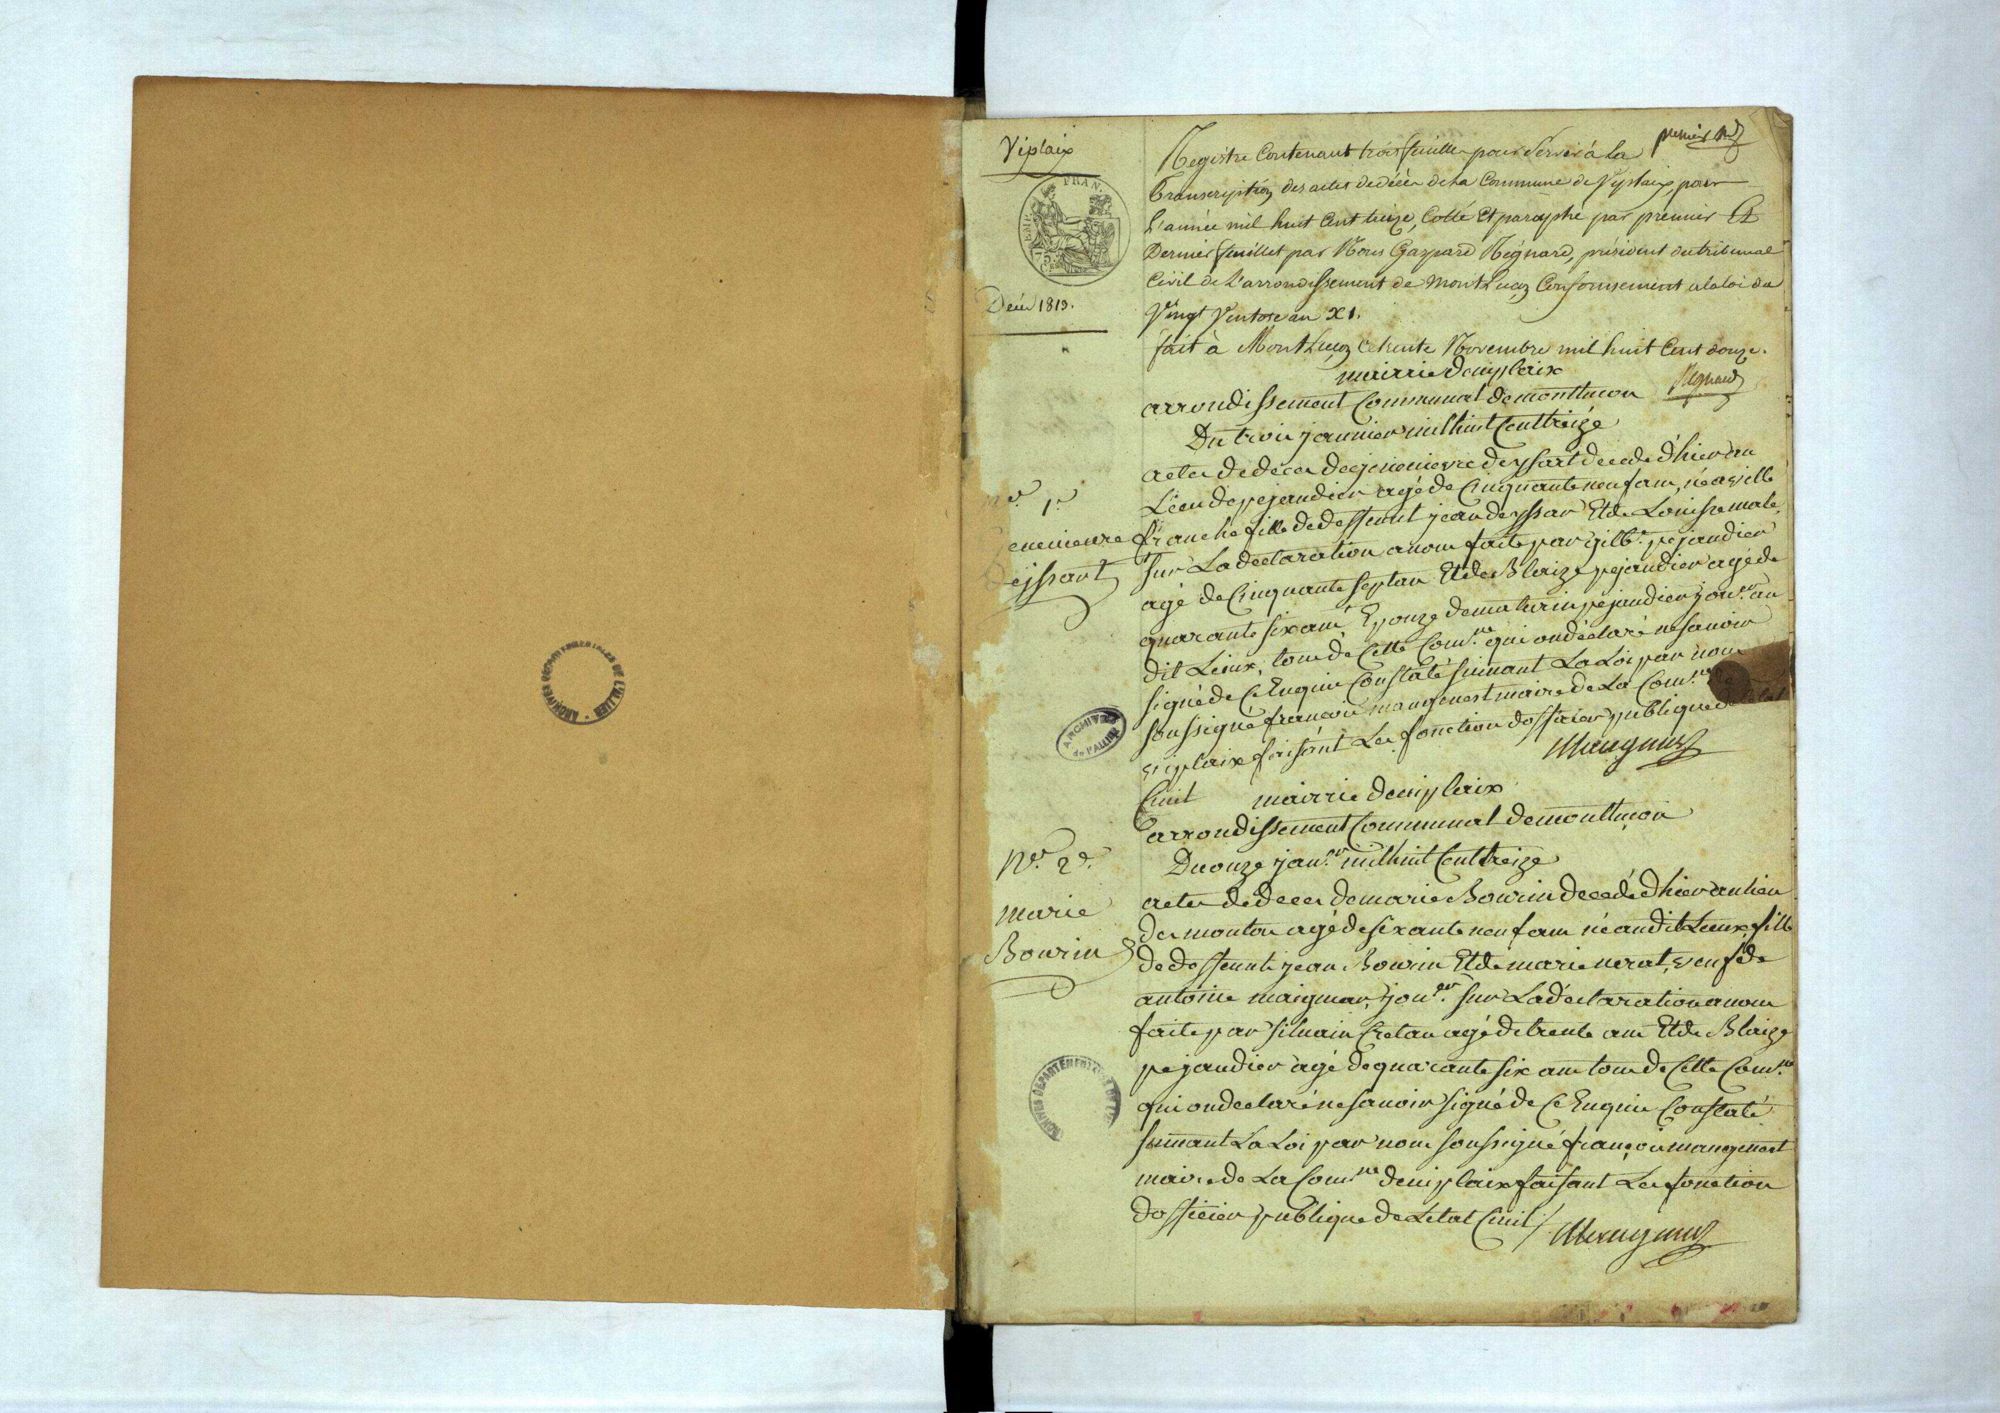 Viplaix
premier Rd
Registre Contenant trois feuilles pour servir à la
Transcription des actes de décès de la Commune de Viplaix pour
l'année mil huit Cent treize, Cotté Et paraphé par premier Et
Dernier feuillet par Nous Gaspard Régnard, président du tribunal
Civil de L'arrondissement de MontLuçon Conformément à la loi du
Vingt Ventose an XI.
fait à MontLuçon ce trente Novembre mil huit Cent douze.
Régnard
EMP. FRAN.
75
Décès 1813.
mairrie de viplaix
arrondissement Communal de montluçon
Du trois janvier mil huit Cent treize
n.º 1.er
genevievre
deyssart
actes de deces de genevievre deyssart decede d'hier au
Lieu de pejaudier agé de Cinquante neuf ans, né a ville
franche fille de deffeunt jean deyssar Et de Louisse male,
sur La declaration a nous faite par gilb.t pejaudier
agé de Cinquante sept an Et de Blaize pejaudier agé de
quarante six ans Epouze de maturin pejaudier jou.er au
dit Lieux, tous de Cette Com.ne qui on déclaré ne savoir
signé de Ce Enquie Constaté suivant La Loi par nous
soussigné françois maugenest maire de La Com.ne de
viplaix faisant Les fonction dofficier publique de Letat
Civil
Maugenest
ARCHIVES
de l'ALLIER
mairrie de viplaix
arrondissement Communal de montluçon
Du onze jan.er mil huit Cent treize
n.º 2.e
marie
Bourin
actes de deces de marie Bourin decedé d'hier au lieu
des moutou agé de sixante neuf ans né au dit Lieux fille
de deffeunt jean Bourin Et de marie nerat, veuf de
antoine maignar, jou.er sur La déclaration a nous
faite par silvain Cretau agé de trente ans Et de Blaize
pejaudier agé de quarante six ans tous de Cette Com.ne
qui on declaré ne savoir signé de Ce Enquie Constaté
suivant La Loi par nous soussigné françois maugenest
maire de La Com.ne de viplaix faisant Les fonction
dofficier publique de Letat Civil /
Maugenest
ARCHIVES DEPARTEMENTALES DE L'ALLIER
ARCHIVES DEPARTEMENTALES DE L'ALLIER